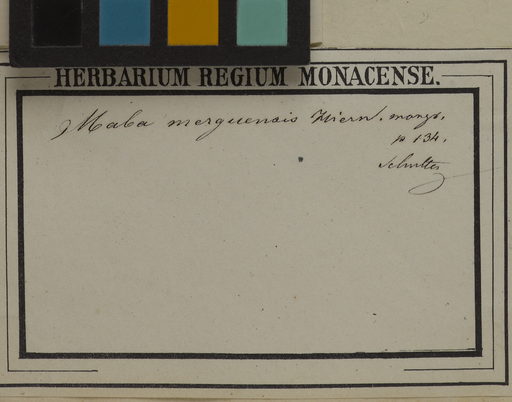 HERBARIUM REGIUM MONACENSE.
Maba merguensis Hiern. monogr.
p 134.
Schultes